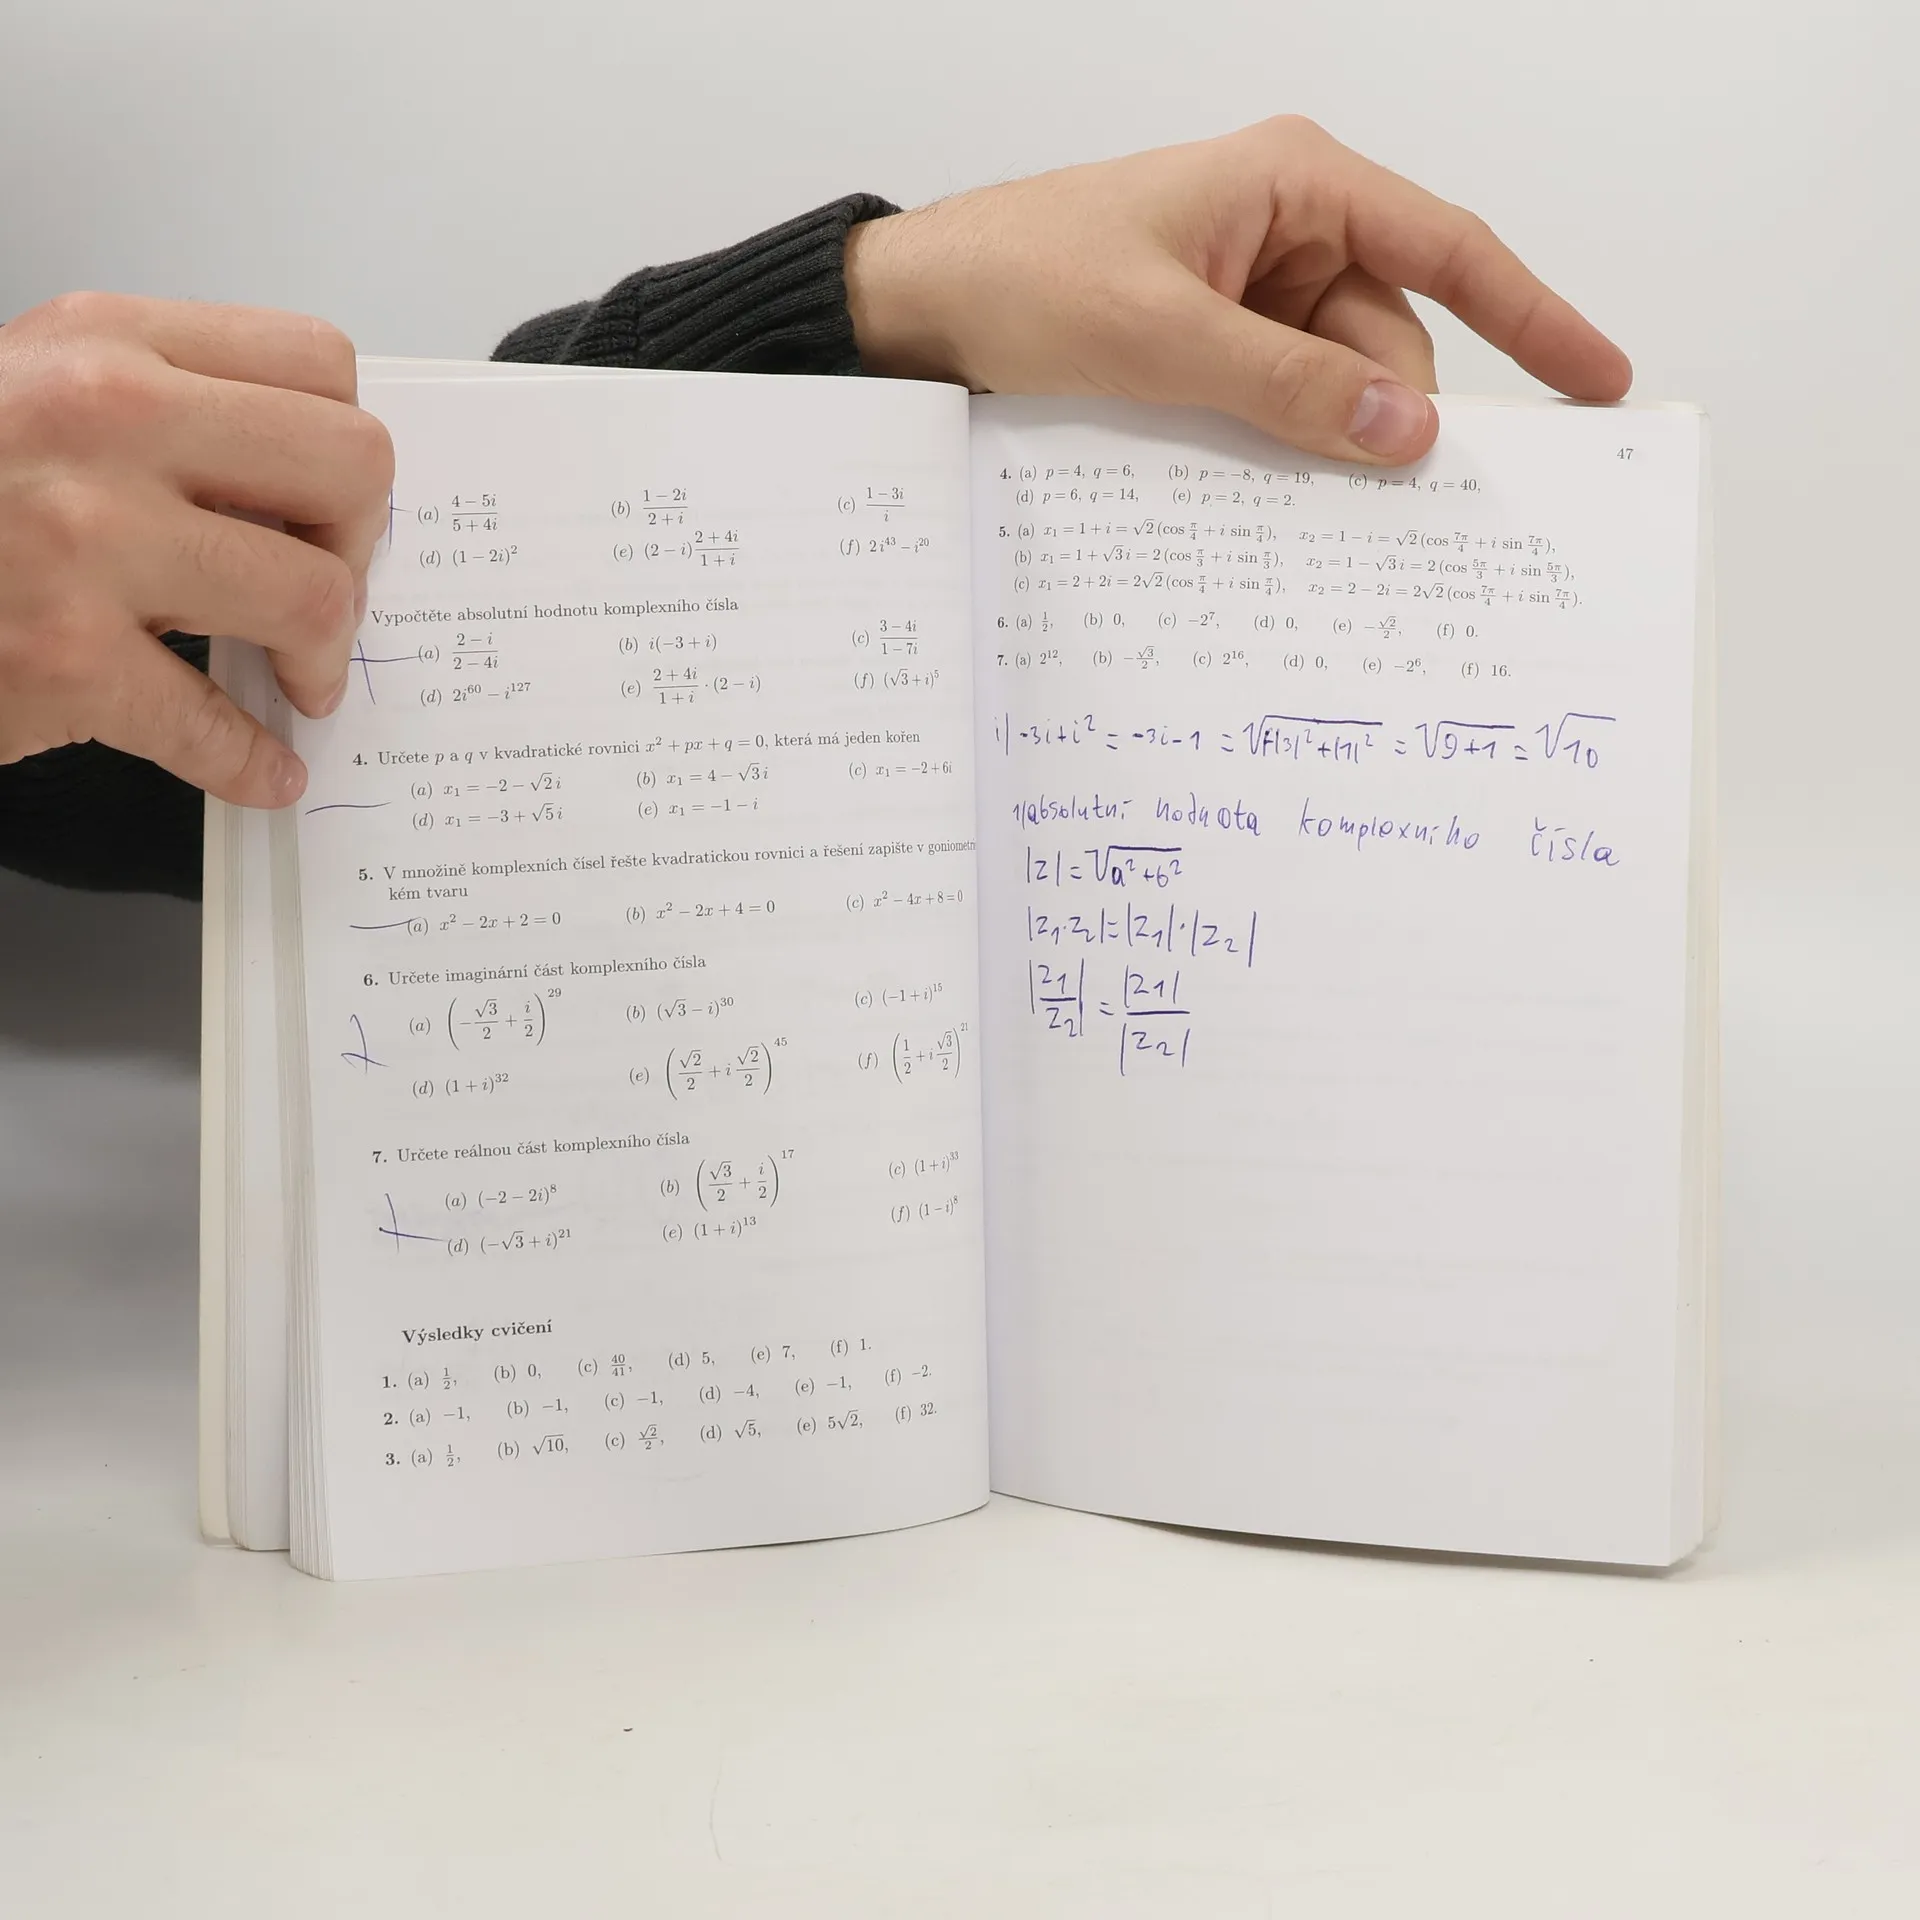 (a) (4 − 5i)/(5 + 4i) (b) (1 − 2i)/(2 + i) (c) (1 − 3i)/i
(d) (1 − 2i)² (e) (2 − i) (2 + 4i)/(1 + i) (f) 2i⁴³ − i²⁰
Vypočtěte absolutní hodnotu komplexního čísla
(a) (2 − i)/(2 − 4i) (b) i(−3 + i) (c) (3 − 4i)/(1 − 7i)
(d) 2i⁶⁰ − i¹²⁷ (e) (2 + 4i)/(1 + i) · (2 − i) (f) (√3 + i)⁵
4. Určete p a q v kvadratické rovnici x² + px + q = 0, která má jeden kořen
(a) x₁ = −2 − √2 i (b) x₁ = 4 − √3 i (c) x₁ = −2 + 6i
(d) x₁ = −3 + √5 i (e) x₁ = −1 − i
5. V množině komplexních čísel řešte kvadratickou rovnici a řešení zapište v goniometri
kém tvaru
(a) x² − 2x + 2 = 0 (b) x² − 2x + 4 = 0 (c) x² − 4x + 8 = 0
6. Určete imaginární část komplexního čísla
(a) (−√3/2 + i/2)²⁹ (b) (√3 − i)³⁰ (c) (−1 + i)¹⁵
(d) (1 + i)³² (e) (√2/2 + i √2/2)⁴⁵ (f) (1/2 + i √3/2)²¹
7. Určete reálnou část komplexního čísla
(a) (−2 − 2i)⁸ (b) (√3/2 + i/2)¹⁷ (c) (1 + i)³³
(d) (−√3 + i)²¹ (e) (1 + i)¹³ (f) (1 − i)⁸
Výsledky cvičení
1. (a) 1/2, (b) 0, (c) 40/41, (d) 5, (e) 7, (f) 1.
2. (a) −1, (b) −1, (c) −1, (d) −4, (e) −1, (f) −2.
3. (a) 1/2, (b) √10, (c) √2/2, (d) √5, (e) 5√2, (f) 32.
47
4. (a) p = 4, q = 6, (b) p = −8, q = 19, (c) p = 4, q = 40,
(d) p = 6, q = 14, (e) p = 2, q = 2.
5. (a) x₁ = 1 + i = √2 (cos π/4 + i sin π/4), x₂ = 1 − i = √2 (cos 7π/4 + i sin 7π/4),
(b) x₁ = 1 + √3 i = 2 (cos π/3 + i sin π/3), x₂ = 1 − √3 i = 2 (cos 5π/3 + i sin 5π/3),
(c) x₁ = 2 + 2i = 2√2 (cos π/4 + i sin π/4), x₂ = 2 − 2i = 2√2 (cos 7π/4 + i sin 7π/4).
6. (a) 1/2, (b) 0, (c) −2⁷, (d) 0, (e) −√2/2, (f) 0.
7. (a) 2¹², (b) −√3/2, (c) 2¹⁶, (d) 0, (e) −2⁶, (f) 16.
-3i+i² = -3i-1 = √|-3|²+|1|² = √9+1 = √10
absolutní hodnota komplexního čísla
|z| = √a²+b²
|z₁·z₂| = |z₁|·|z₂|
|z₁/z₂| = |z₁|/|z₂|